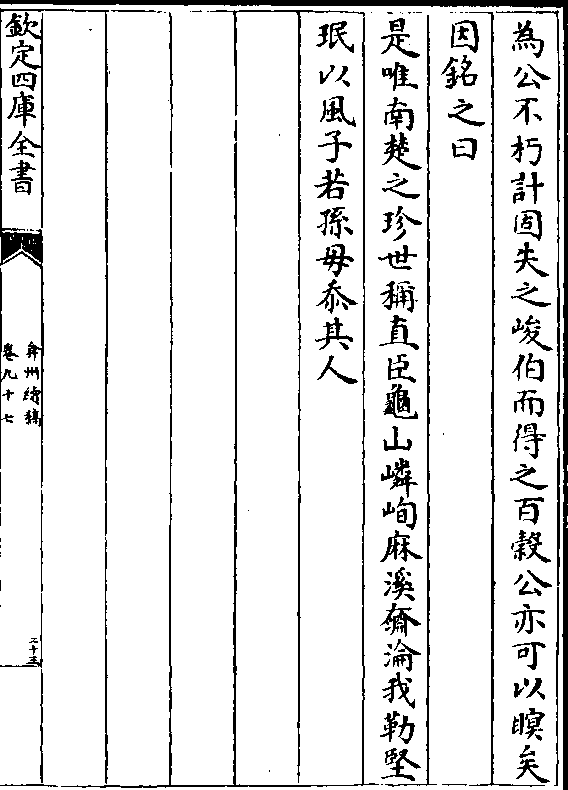 為公不朽計固失之峻伯而得之百穀公亦可以瞑矣
因銘之曰
是唯南楚之珍世稱直臣龜山嶙峋麻溪奫淪我勒堅
珉以風子若孫毋忝其人
欽定四庫全書
弇州續稿
卷九十七
二十三